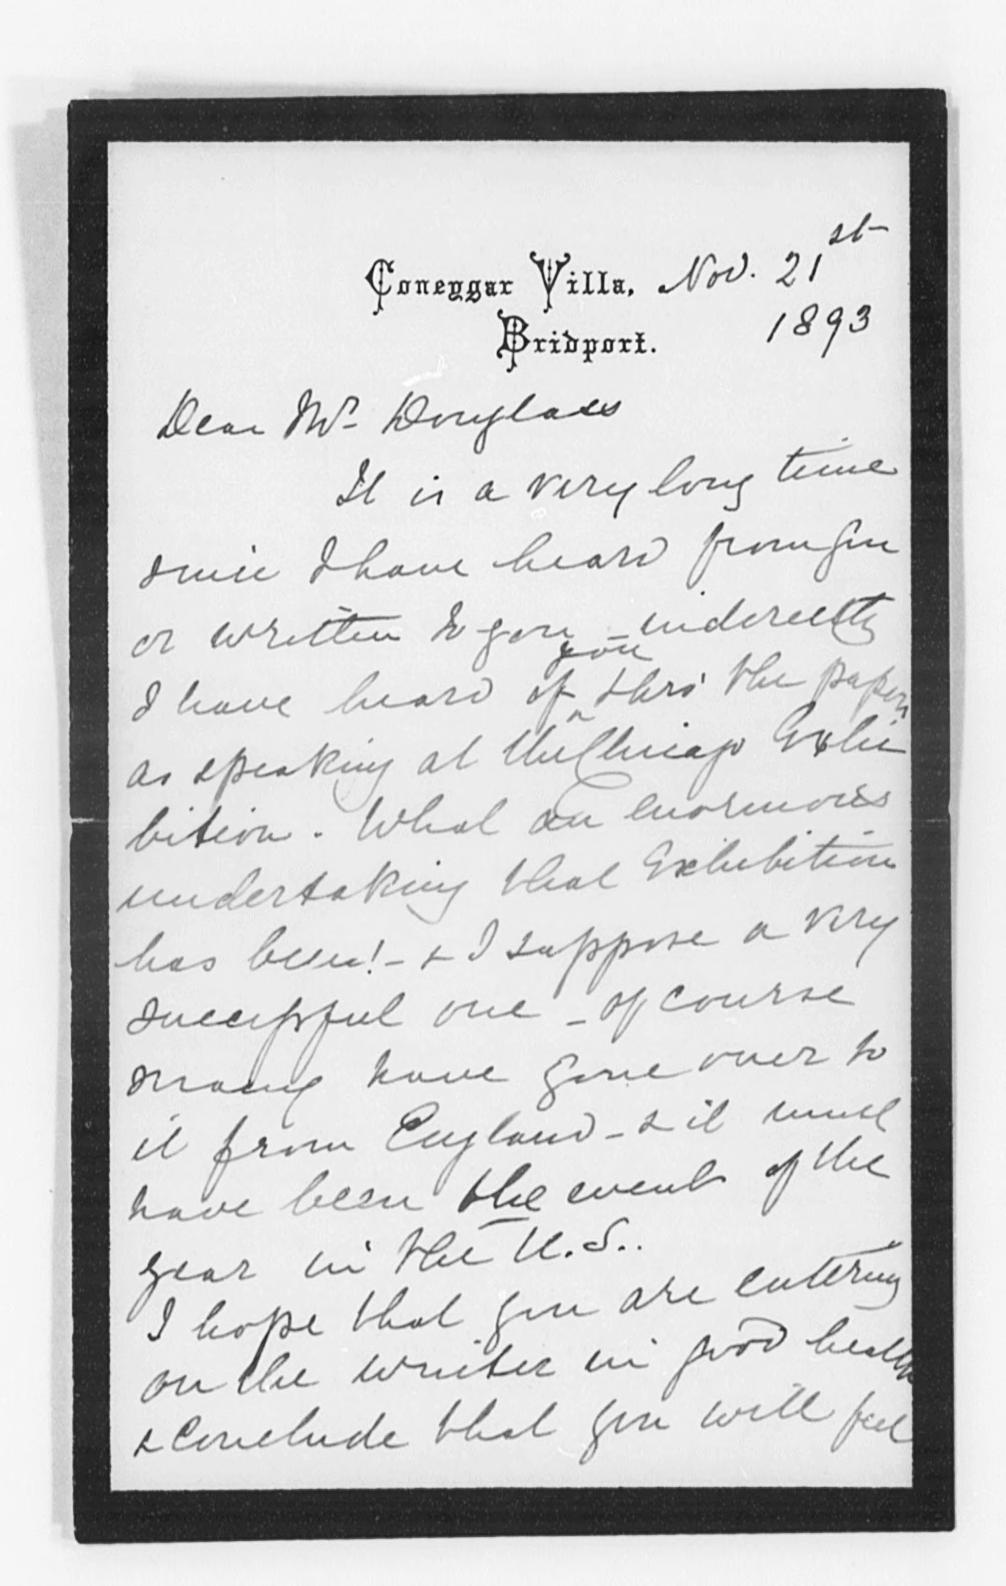 Coneygar Villa, Nov. 21st
Bridport. 1893
Dear Mr Douglass
It is a very long time
since I have heard from you
or written to you - indirectly
I have heard of you thro' the papers
as speaking at the Chicago Exhi
bition. What an enormous
undertaking that Exhibition
has been! - & I suppose a very
successful one - of course
many have gone over to
it from England - & it must
have been the event of the
year in the U.S..
I hope that you are entering
on the winter in good health
& conclude that you will feel